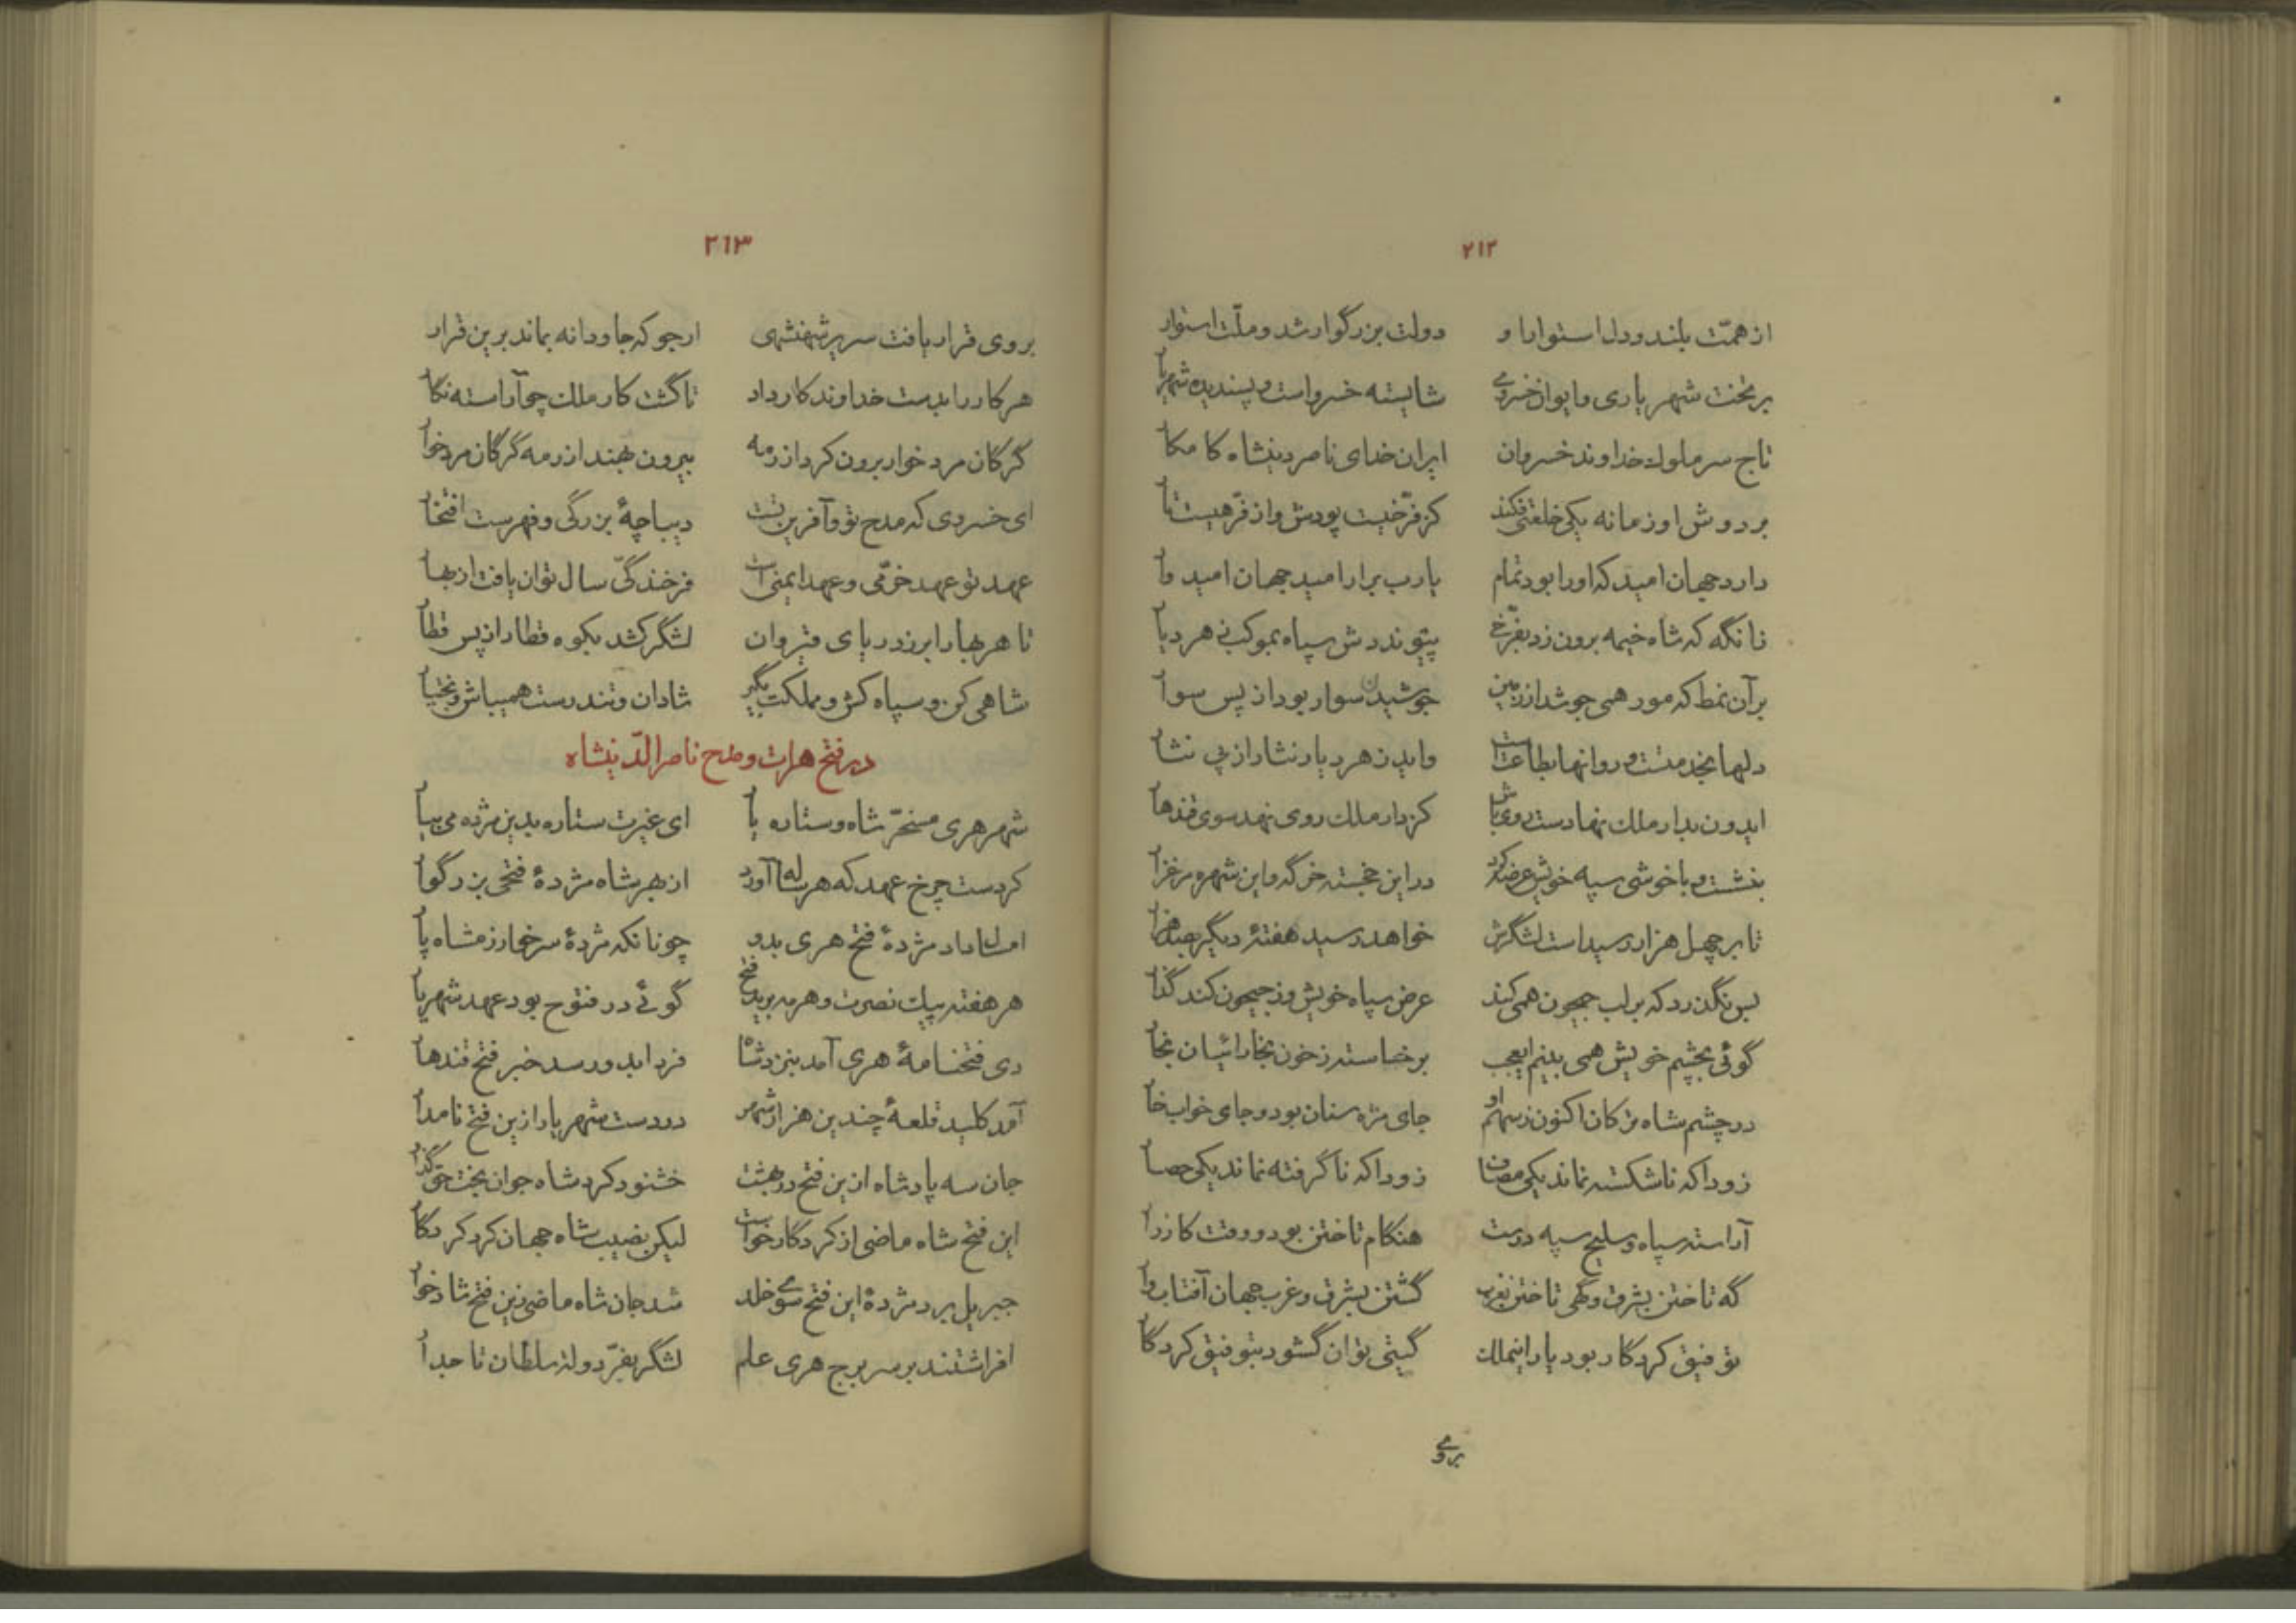 ۲۱۲
از همّت بلند و دل استوار او دولت بزرگوار شد و ملّت استوار
بر تخت شهریاری و ایوان خسروی شایسته خسرو است و پسندیده شهریار
تاج سر ملوک خداوند خسروان ایران خدای ناصر دینشاه کامکار
بر دوش او زمانه یکی خلعتی فکند کز فرّ خیت پودش و از فرّهیست تار
دارد جهان امید که او را بود تمام یارب برار امید جهان امیدوار
زانگه که شاه خیمه برون زد بفرّخی پیوندرش سپاه بموکب ز هر دیار
بر آن نمط که مور همی جوشد از زمین جوشیدن سوار بود از پس سوار
دلها بخدمتست و روانها بطاعتست واید ز هر دیار نثار از پی نثار
ایدون بدار ملک نهادست روی باش کز دار ملک روی نهد سوی قندهار
بنشست و با خوشی سپه خویش عرضه کرد در این خجسته خرگه و این شهره مرغزار
تا بر چهل هزار رسیداست لشگرش خواهد رسید هفتهٔ دیگر بصد هزار
بس نگذرد که بر لب جیحون همی کند عرض سپاه خویش وز جیحون کند گذار
گوئی بچشم خویش همی بینم ایعجب برخاسته ز خون بخارائیان بخار
در چشم شاه ترکان اکنون ز سهم او جای مژه سنان بود و جای خواب خار
زودا که ناشکسته نماند یکی مصاف زودا که ناگرفته نماند یکی حصار
آراسته سپاه و سلیح سپه درست هنگام تاختن بود و وقت کارزار
گه تاختن بشرق و گهی تاختن بغرب گشتن بشرق و غرب جهان آفتاب وار
توفیق کردگار بود یار اینملک گیتی توان گشود بتوفیق کردگار
بروی
۲۱۳
بروی قرار یافت سریر شهنشهی ارجو که جاودانه بماند برین قرار
هر کار را بدست خداوند کار داد تا گشت کار ملک چو آراسته نگار
گرگان مردخوار برون کرد از رمه بیرون نهند از رمه گرگان مردخوار
ای خسروی که مدح تو و آفرین تست دیباچهٔ بزرگی و فهرست افتخار
عهد تو عهد خرّمی و عهد ایمنی است فرخندگیّ سال توان یافت از بهار
تا هر بهار ابر ز دریای قیروان لشگر کشد بکوه قطار از پس قطار
شاهی کن و سپاه کش و مملکت بگیر شادان و تندرست همیباش و بختیار
در فتح هرات و مدح ناصرالدّینشاه
شهر هری مسخّر شاه و ستاره یار ای غیرت ستاره بدین مژده می بیار
کردست چرخ عهد که هر ساله آورد از بهر شاه مژدهٔ فتحی بزرگوار
امسال داد مژدهٔ فتح هری بدو چونانکه مژدهٔ سر خوارزمشاه پار
هر هفته پیک نصرت و هر مه برید فتح گوئی در فتوح بود عهد شهریار
دی فتحنامهٔ هری آمد بنزد شاه فردا بدو رسد خبر فتح قندهار
آمد کلید قلعهٔ چندین هزار شهر در دست شهریار ازین فتح نامدار
جان سه پادشاه ازین فتح در بهشت خشنود کرد شاه جوان بخت حق گذار
این فتح شاه ماضی از کردگار خواست لیکن نصیب شاه جهان کرد کردگار
جبریل برد مژدهٔ این فتح سوی خلد شد جان شاه ماضی زین فتح شادخوار
افراشتند بر سر برج هری علم لشگر بفرّ دولت سلطان تاجدار